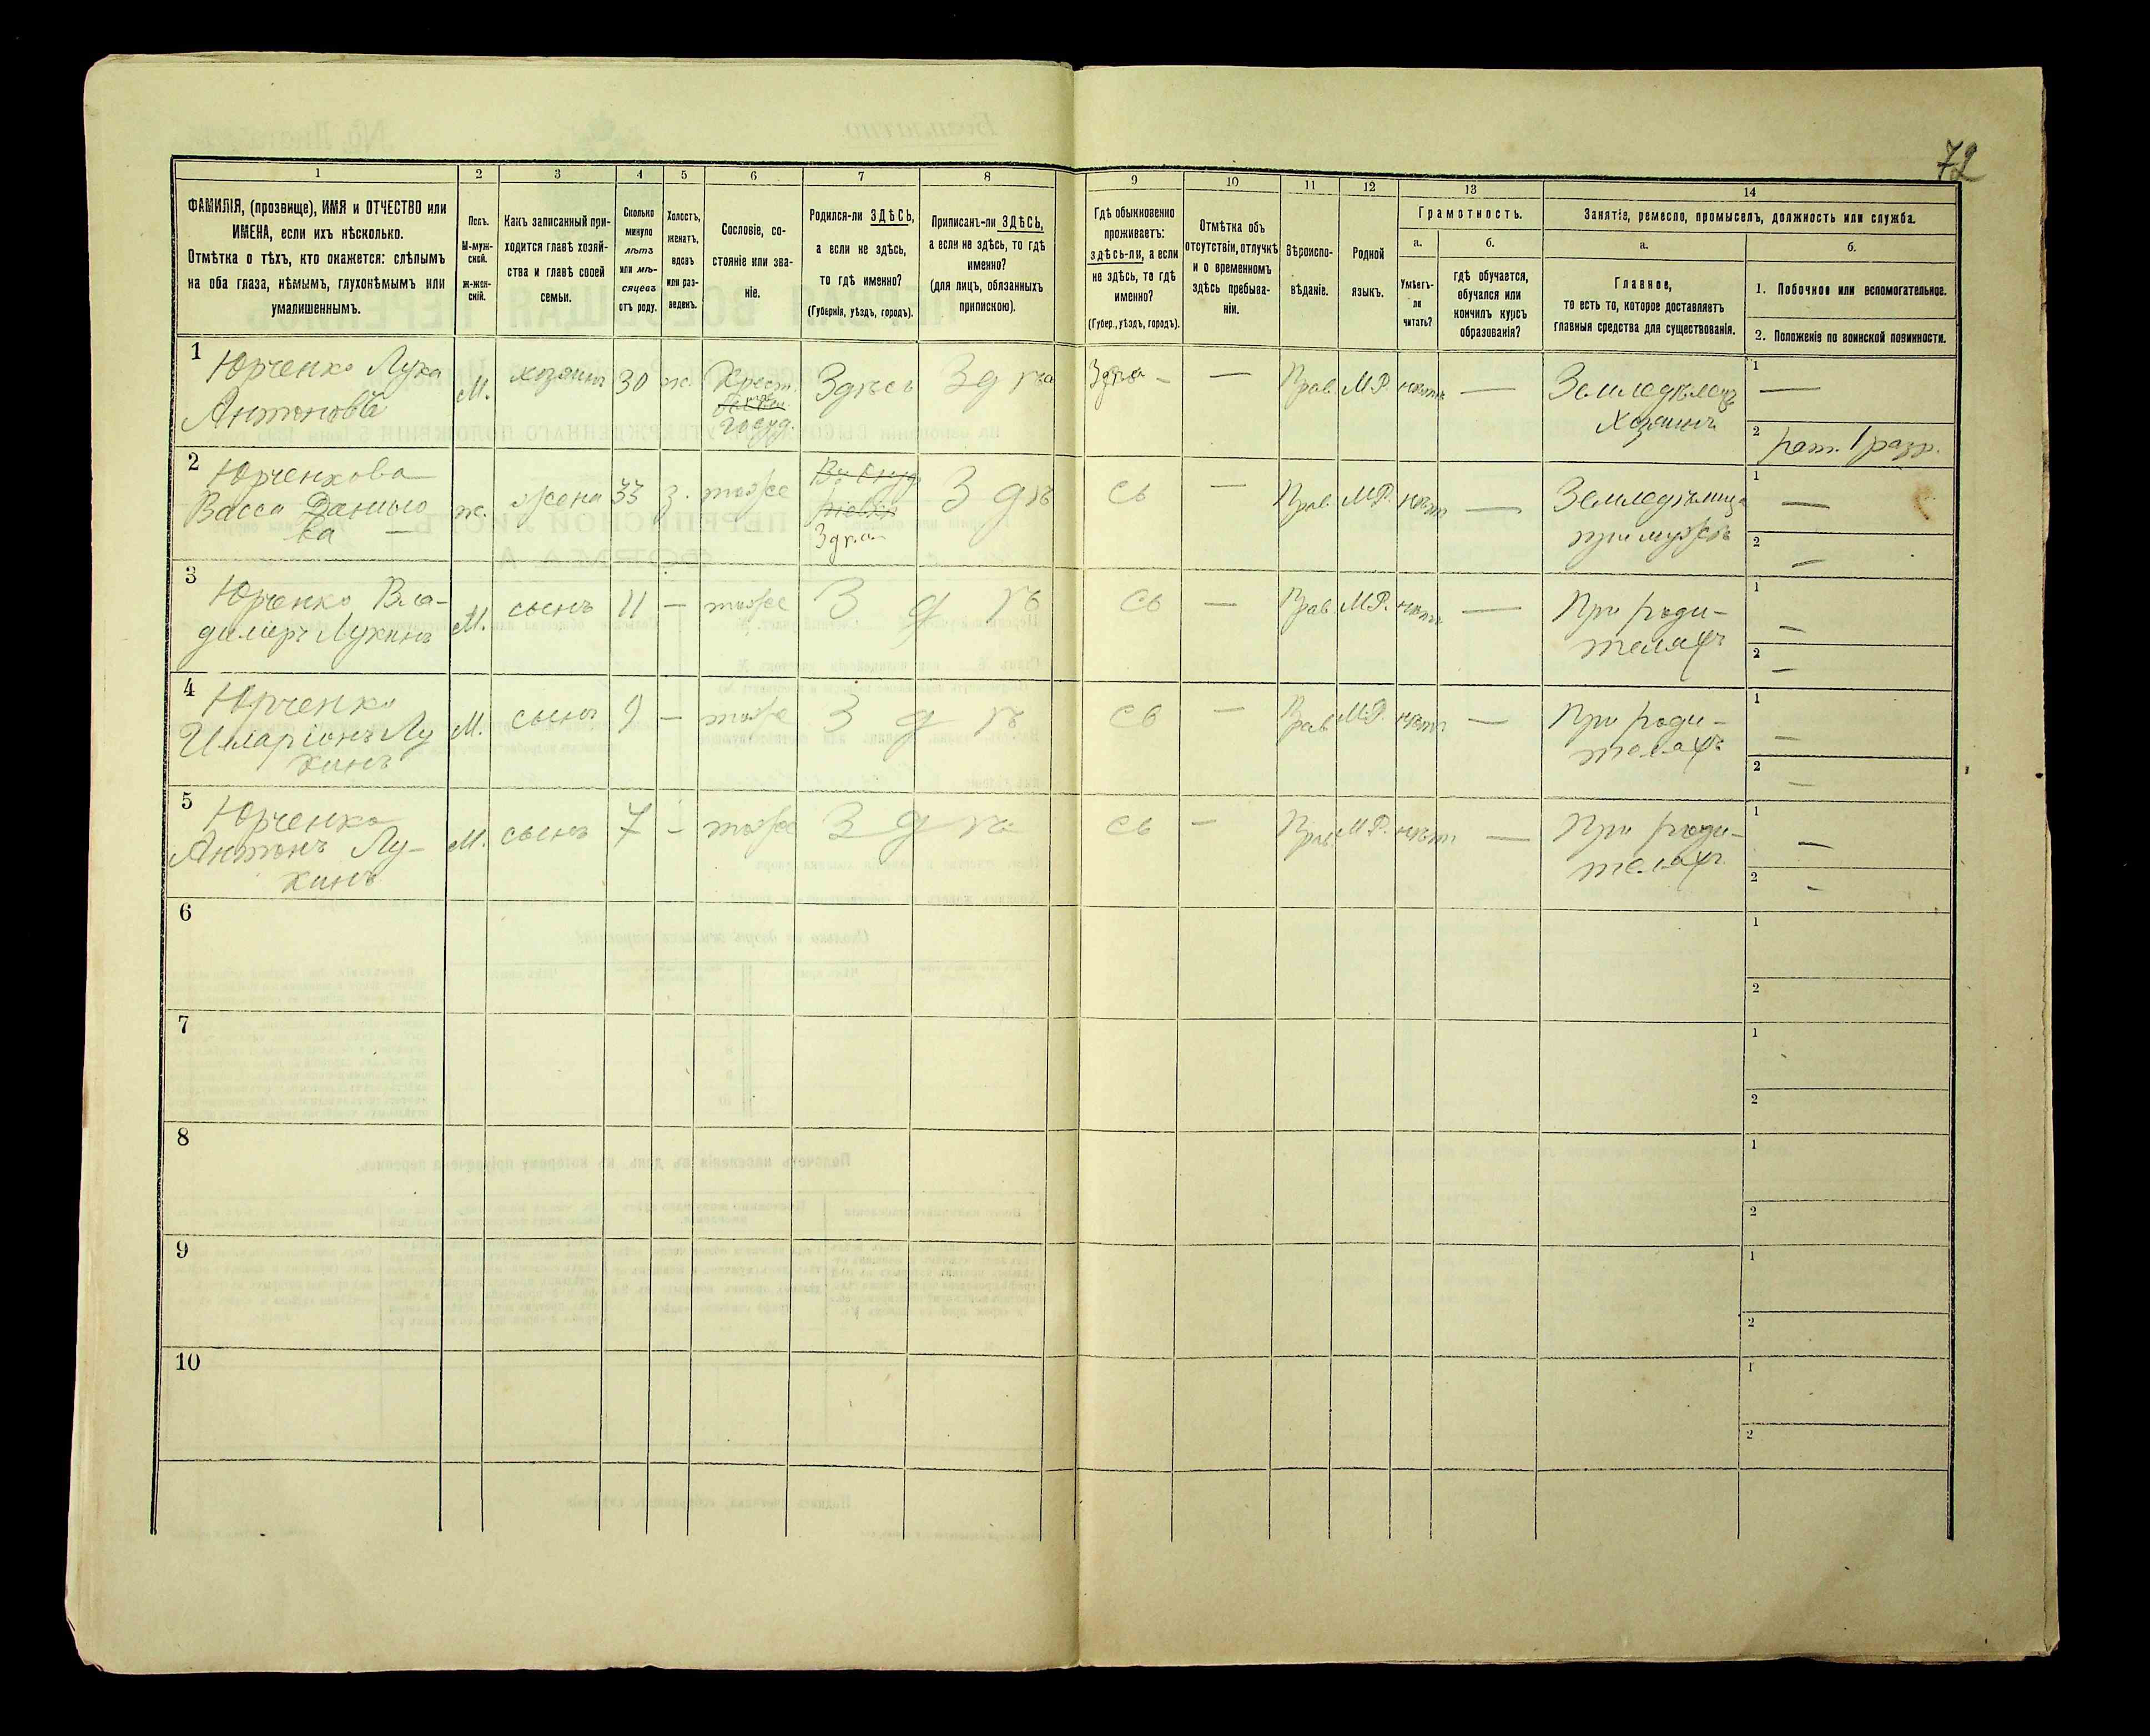 72
1
2
3
4
5
6
7
8
9
10
11
12
13
14
ФАМИЛІЯ, (прозвище), ИМЯ и ОТЧЕСТВО или
ИМЕНА, если ихъ нѣсколько.
Отмѣтка о тѣхъ, кто окажется: слѣпымъ
на оба глаза, нѣмымъ, глухонѣмымъ или
умалишеннымъ.
Полъ.
М-муж-
ской.
ж-жен-
скій.
Какъ записанный при-
ходится главѣ хозяй-
ства и главѣ своей
семьи.
Сколько
минуло
лѣтъ
или мѣ-
сяцевъ
отъ роду.
Холостъ,
женатъ,
вдовъ
или раз-
веденъ.
Сословіе, со-
стояніе или зва-
ніе.
Родился-ли ЗДѢСЬ,
а если не здѣсь,
то гдѣ именно?
(Губернія, уѣздъ, городъ).
Приписанъ-ли ЗДѢСЬ,
а если не здѣсь, то гдѣ
именно?
(для лицъ, обязанныхъ
припискою).
Гдѣ обыкновенно
проживаетъ:
здѣсь-ли, а если
не здѣсь, то гдѣ
именно?
(Губер., уѣздъ, городъ).
Отмѣтка объ
отсутствіи, отлучкѣ
и о временномъ
здѣсь пребыва-
ніи.
Вѣроиспо-
вѣданіе.
Родной
языкъ.
Грамотность.
а.
б.
Умѣетъ-
ли
читать?
гдѣ обучается,
обучался или
кончилъ курсъ
образованія?
Занятіе, ремесло, промыселъ, должность или служба.
а.
б.
Главное,
то есть то, которое доставляетъ
главныя средства для существованія.
1. Побочное или вспомогательное.
2. Положеніе по воинской повинности.
1
Юрченко Лука
Антоновъ
М.
хозяинъ
30
ж.
Крест.
госуд.
Здѣсь
Здѣсь
—
Прав.
М.Р.
нѣтъ
—
Земледѣлецъ
Хозяинъ
1
—
2
рат. 1 разр.
2
Юрченкова
Васса Данило
ва —
ж.
жена
33
з.
тоже
Здѣ
сь
—
Прав.
М.Р.
нѣтъ
—
Земледѣлица
при мужѣ
1
—
2
—
3
Юрченко Вла-
димiръ Лукинъ
М.
сынъ
11
—
тоже
З д ѣ
сь
—
Прав.
М.Р.
нѣтъ
—
При роди-
теляхъ
1
—
2
—
4
Юрченко
Илларіонъ Лу
кинъ
М.
сынъ
9
—
тоже
З д ѣ
сь
—
Прав.
М.Р.
нѣтъ
—
При роди-
теляхъ
1
—
2
—
5
Юрченко
Антонъ Лу-
кинъ
М.
сынъ
7
—
тоже
З д ѣ
сь
—
Прав.
М.Р.
нѣтъ
—
При роди-
теляхъ
1
—
2
—
6
1
2
7
1
2
8
1
2
9
1
2
10
1
2